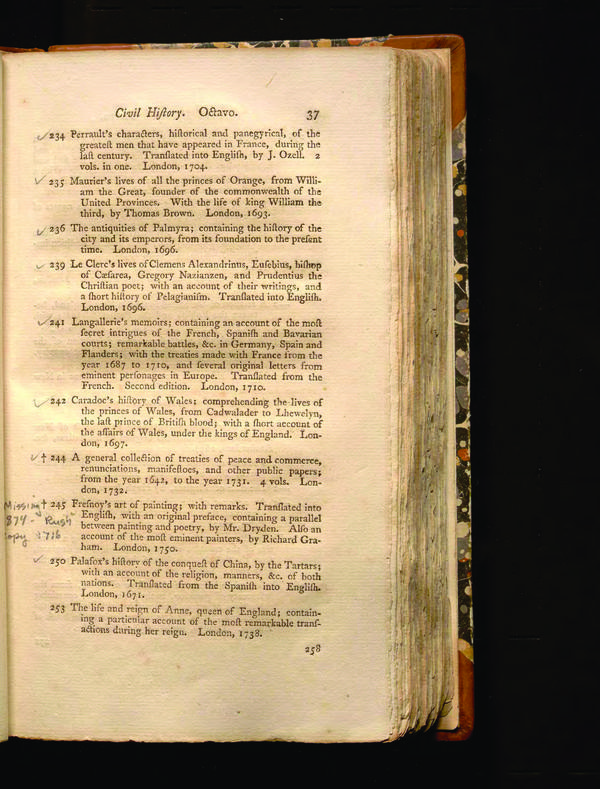 Civil Hiſtory. Octavo. 37
234 Perrault's characters, hiſtorical and panegyrical, of the
greateſt men that have appeared in France, during the
laſt century. Tranſlated into Engliſh, by J. Ozell. 2
vols. in one. London, 1704.
235 Maurier's lives of all the princes of Orange, from Willi-
am the Great, founder of the commonwealth of the
United Provinces. With the life of king William the
third, by Thomas Brown. London, 1693.
236 The antiquities of Palmyra; containing the hiſtory of the
city and its emperors, from its foundation to the preſent
time. London, 1696.
239 Le Clerc's lives of Clemens Alexandrinus, Euſebius, biſhop
of Cæſarea, Gregory Nazianzen, and Prudentius the
Chriſtian poet; with an account of their writings, and
a ſhort hiſtory of Pelagianiſm. Tranſlated into Engliſh.
London, 1696.
241 Langallerie's memoirs; containing an account of the moſt
ſecret intrigues of the French, Spaniſh and Bavarian
courts; remarkable battles, &c. in Germany, Spain and
Flanders; with the treaties made with France from the
year 1687 to 1710, and ſeveral original letters from
eminent perſonages in Europe. Tranſlated from the
French. Second edition. London, 1710.
242 Caradoc's hiſtory of Wales; comprehending the lives of
the princes of Wales, from Cadwalader to Lhewelyn,
the laſt prince of Britiſh blood; with a ſhort account of
the affairs of Wales, under the kings of England. Lon-
don, 1697.
† 244 A general collection of treaties of peace and commerce,
renunciations, manifeſtoes, and other public papers;
from the year 1642, to the year 1731. 4 vols. Lon-
don, 1732.
Missing † 245 Freſnoy's art of painting; with remarks. Tranſlated into
Engliſh, with an original preface, containing a parallel
between painting and poetry, by Mr. Dryden. Alſo an
account of the moſt eminent painters, by Richard Gra-
ham. London, 1750.
250 Palafox's hiſtory of the conqueſt of China, by the Tartars;
with an account of the religion, manners, &c. of both
nations. Tranſlated from the Spaniſh into Engliſh.
London, 1671.
253 The life and reign of Anne, queen of England; contain-
ing a particular account of the moſt remarkable tranſ-
actions during her reign. London, 1738.
258